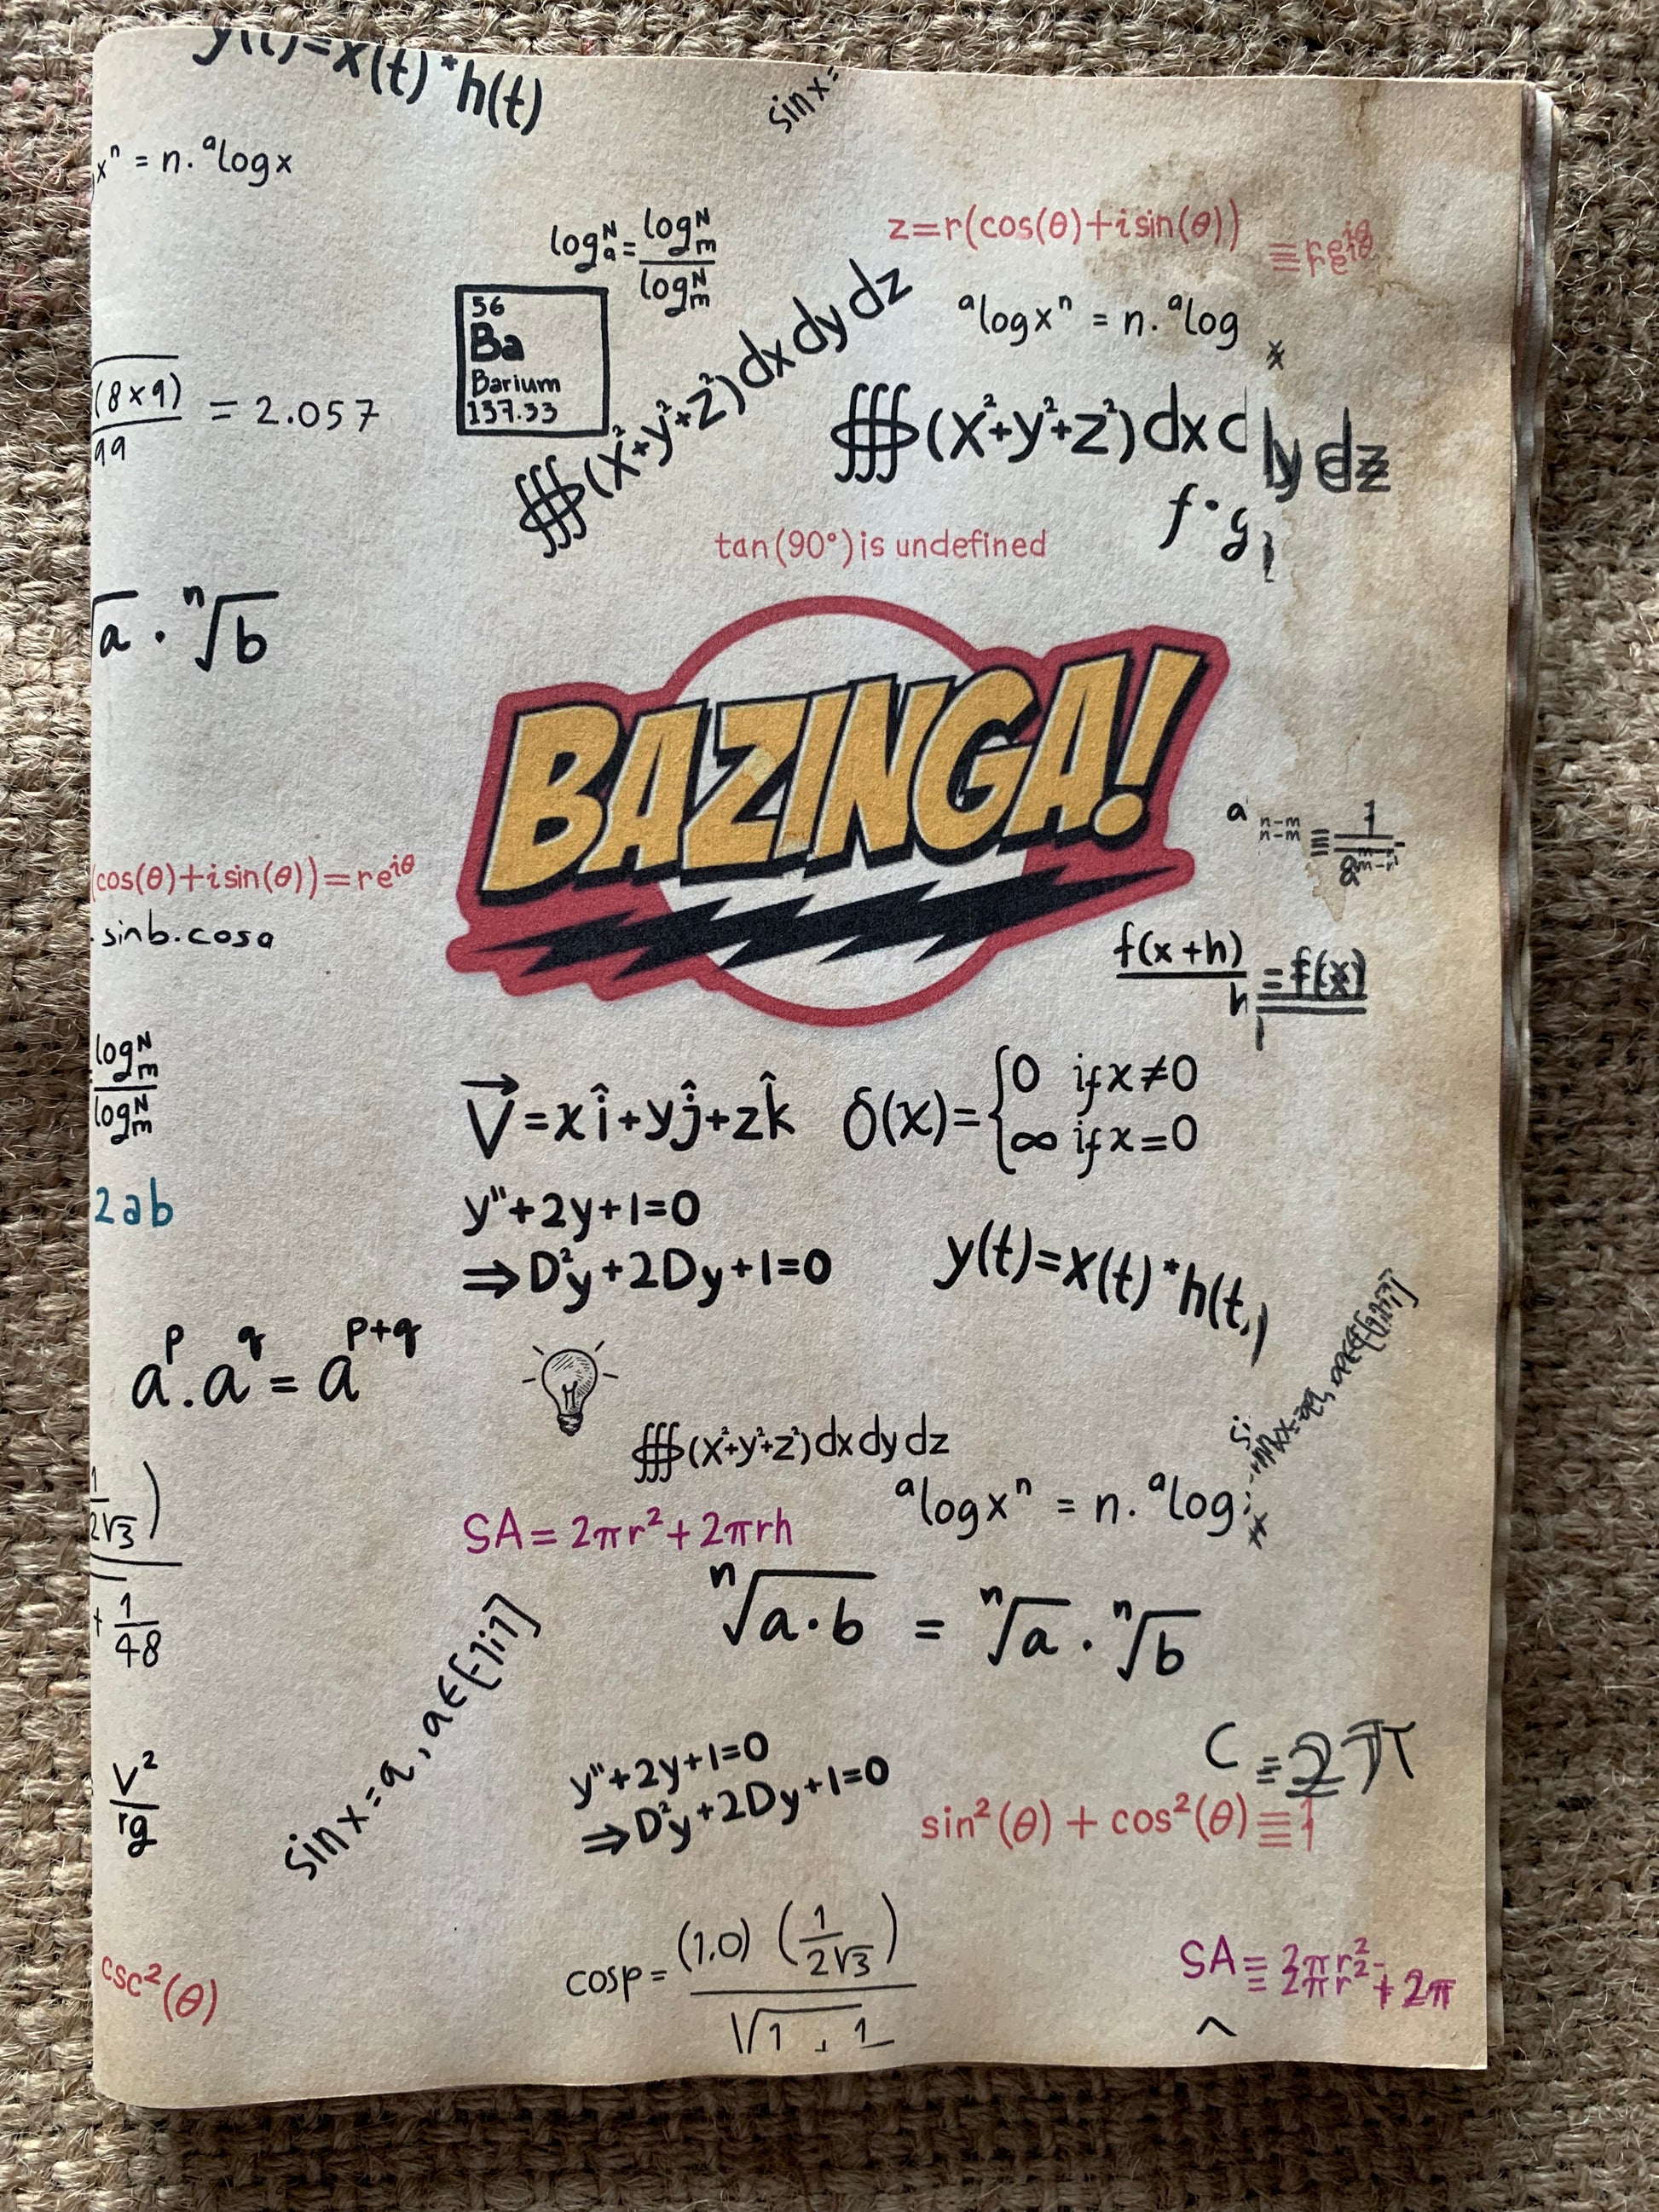 y(t)=x(t)*h(t)
sinx=
xⁿ = n.ᵃlogx
logₐᴺ = logₘᴺ / logₘᴺ
z=r(cos(θ)+isin(θ)) =re^iθ
56
Ba
Barium
137.33
∰(x²+y²+z²)dxdydz
ᵃlogxⁿ = n.ᵃlog x
(8×9) / 99 = 2.057
∰(x²+y²+z²)dxdydz
f·g
tan(90°)is undefined
√a · ⁿ√b
BAZINGA!
a^n-m = 1 / a^m-n
(cos(θ)+isin(θ))=re^iθ
.sinb.cosa
f(x+h) =f(x)
h
logₘᴺ
logₘᴺ
V⃗=xî+yĵ+zk̂
δ(x)={0 if x≠0
∞ if x=0
2ab
y''+2y+1=0
⇒D²y+2Dy+1=0
y(t)=x(t)*h(t)
aᵖ.a^q = a^p+q
sinx=a, a∈[-1;1]
∰(x²+y²+z²)dxdydz
ᵃlogxⁿ = n.ᵃlog x
1 / 2√3)
SA=2πr²+2πrh
ⁿ√a·b = ⁿ√a · ⁿ√b
+ 1/48
sinx=a, a∈[-1;1]
C =2π
y''+2y+1=0
⇒D²y+2Dy+1=0
V² / rg
sin²(θ) + cos²(θ)=1
cosp= (1,0) (1 / 2√3)
√1 . 1
csc²(θ)
SA= 2πr²+2π